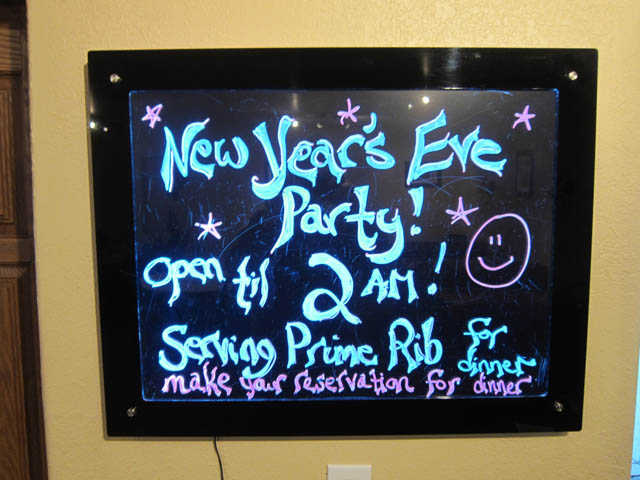 New Year's Eve
Party!
open til 2 AM!
Serving Prime Rib for dinner
make your reservation for dinner